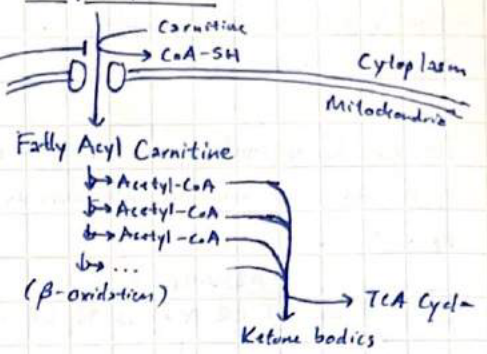 Carnitine
CoA-SH
Cytoplasm
Mitochondria
Fatty Acyl Carnitine
Acetyl-CoA
Acetyl-CoA
Acetyl-CoA
...
(β-oxidation)
TCA Cycle
Ketone bodies